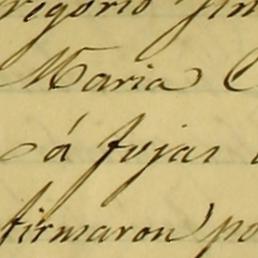 regorio
Maria C
á fojas
firmaron po